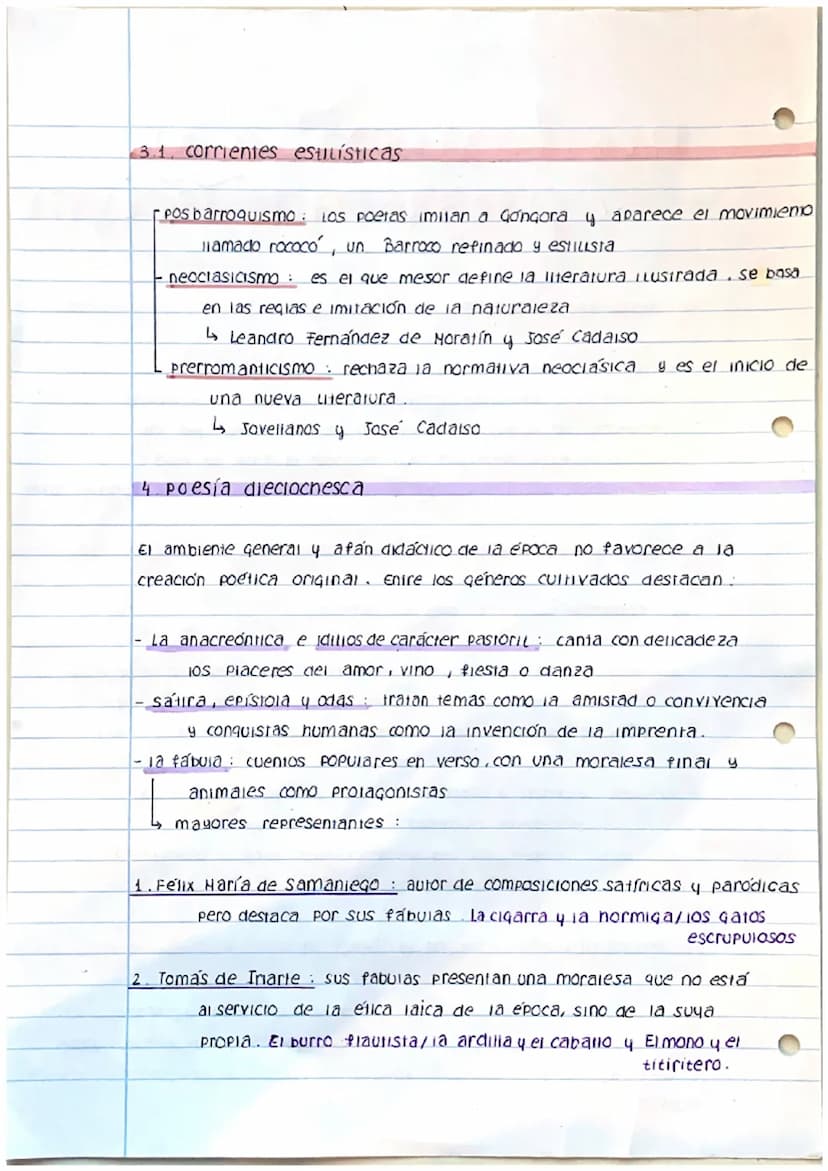 3.1. corrientes estilísticas
posbarroquismo : los poetas imitan a Góngora y aparece el movimiento
llamado rococó, un Barroco refinado y estilista
neoclasicismo : es el que mejor define la literatura ilustrada. se basa
en las reglas e imitación de la naturaleza
↳ Leandro Fernández de Moratín y José Cadalso
prerromanticismo : rechaza la normativa neoclásica y es el inicio de
una nueva literatura.
↳ Jovellanos y José Cadalso
4. poesía dieciochesca
El ambiente general y afán didáctico de la época no favorece a la
creación poética original. Entre los géneros cultivados destacan :
- La anacreóntica e idilios de carácter pastoril : canta con delicadeza
los placeres del amor, vino, fiesta o danza
- sátira, epístola y odas : tratan temas como la amistad o convivencia
y conquistas humanas como la invención de la imprenta.
- la fábula : cuentos populares en verso, con una moraleja final y
animales como protagonistas
↳ mayores representantes :
1. Félix María de Samaniego : autor de composiciones satíricas y paródicas
pero destaca por sus fábulas. La cigarra y la hormiga/los gatos
escrupulosos
2. Tomás de Iriarte : sus fábulas presentan una moraleja que no está
al servicio de la ética laica de la época, sino de la suya
propia. El burro flautista/la ardilla y el caballo y El mono y el
titiritero.